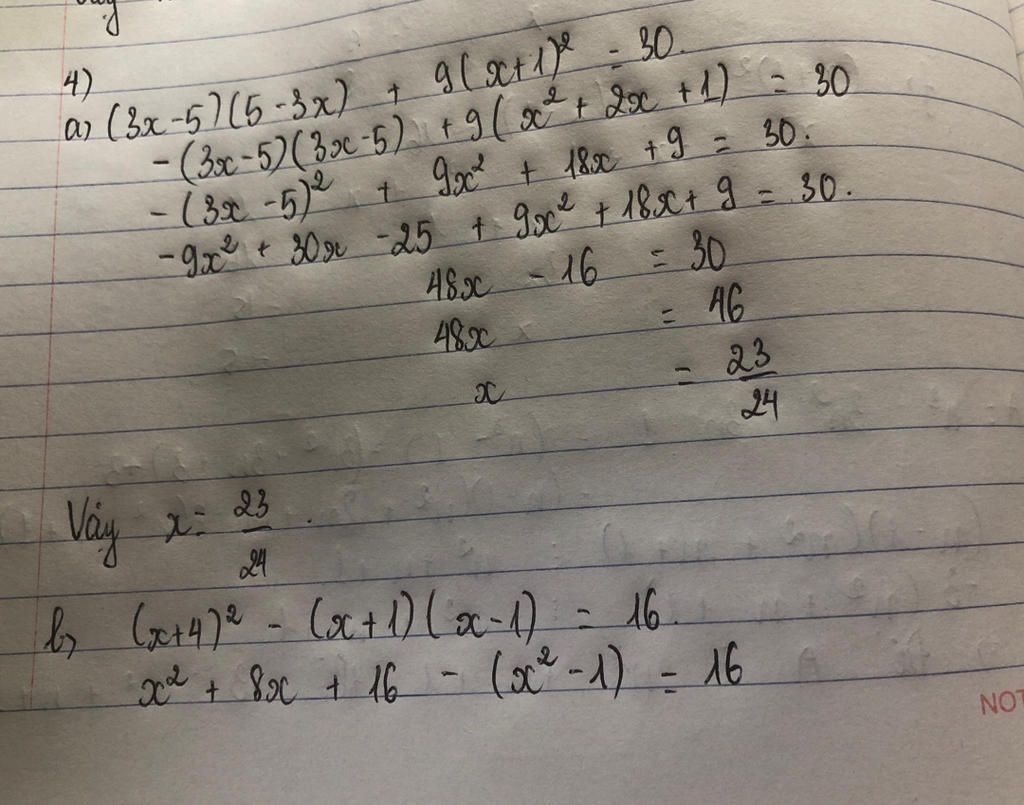 4)
a) (3x-5)(5-3x) + 9(x+1)² = 30.
-(3x-5)(3x-5) + 9(x² + 2x + 1) = 30
-(3x-5)² + 9x² + 18x + 9 = 30.
-9x² + 30x - 25 + 9x² + 18x + 9 = 30.
48x - 16 = 30
48x = 46
x = 23/24
Vậy x = 23/24.
b) (x+4)² - (x+1)(x-1) = 16.
x² + 8x + 16 - (x² - 1) = 16
NOT